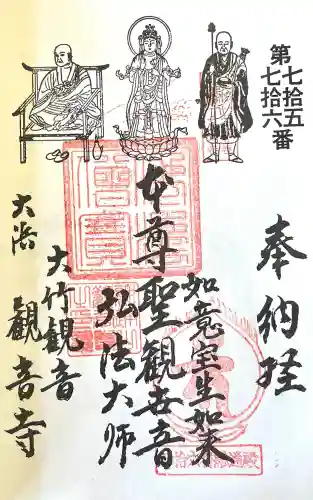 第七拾五
七拾六番
奉納経
如意宝生如来
本尊聖観世音
弘法大師
大竹観音
大浜 観音寺